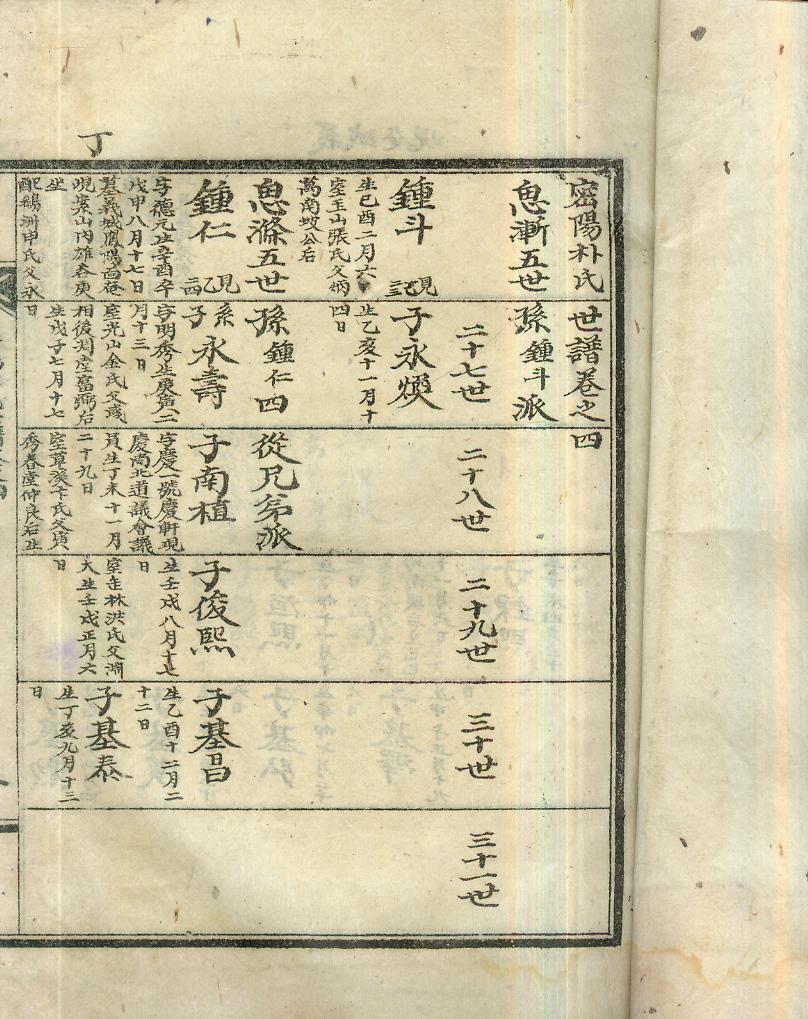 丁
密陽朴氏世譜卷之四
息漸五世孫鍾斗派
二十七世
二十八世
二十九世
三十世
三十一世
鍾斗
見記
生己酉二月六
室玉山張氏父炳
萬南坡公后
子永煥
生乙亥十一月十
四日
息滌五世孫鍾仁四從兄弟派
鍾仁
見記
字德元生辛酉卒
戊甲八月十七日
墓義城鳳陽面
坐
孫
子永壽
字明秀生庚寅二
月十三日
室光山金氏父
生戊子七月十七
日
子南植
字慶一號慶軒現
慶尚北道議會議
員生丁未十一月
二十九日
室草溪卞氏父寅
秀春堂仲良后生
子俊熙
生壬戌八月十七
日
室缶林洪氏父淵
大生壬戌正月六
日
子基昌
生乙酉十二月二
十二日
子基泰
生丁亥九月十三
日